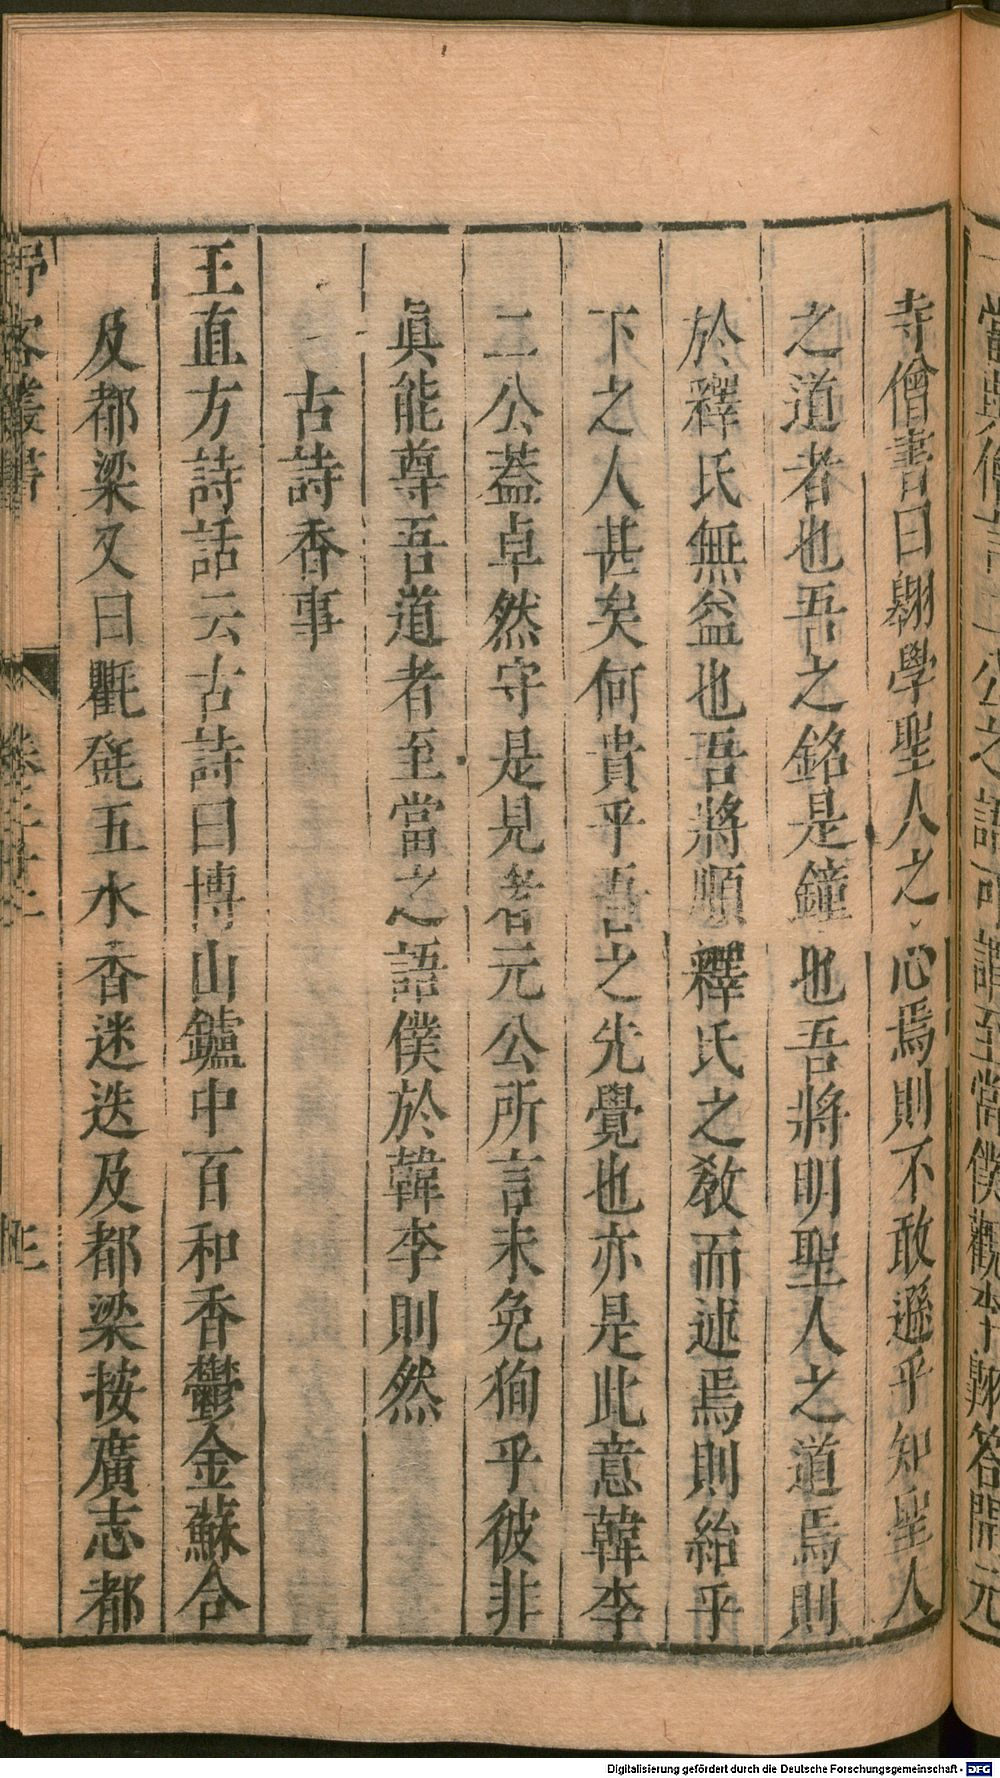 當與僧言二公之語可謂至當僕觀李翺答開元
寺僧書曰翺學聖人之心焉則不敢遜乎知聖人
之道者也吾之銘是鐘也吾將明聖人之道焉則
於釋氏無益也吾將順釋氏之敎而述焉則紿乎
下之人甚矣何貴乎吾之先覺也亦是此意韓李
二公蓋卓然守是見者元公所言未免徇乎彼非
眞能尊吾道者至當之語僕於韓李則然
古詩香事
王直方詩話云古詩曰博山鑪中百和香鬱金蘇合
及都梁又曰氍㲪五水香迷迭及都梁按廣志都
野客叢書
Digitalisierung gefördert durch die Deutsche Forschungsgemeinschaft - DFG